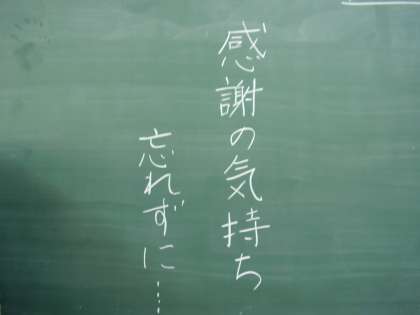 感謝の気持ち
忘れずに…